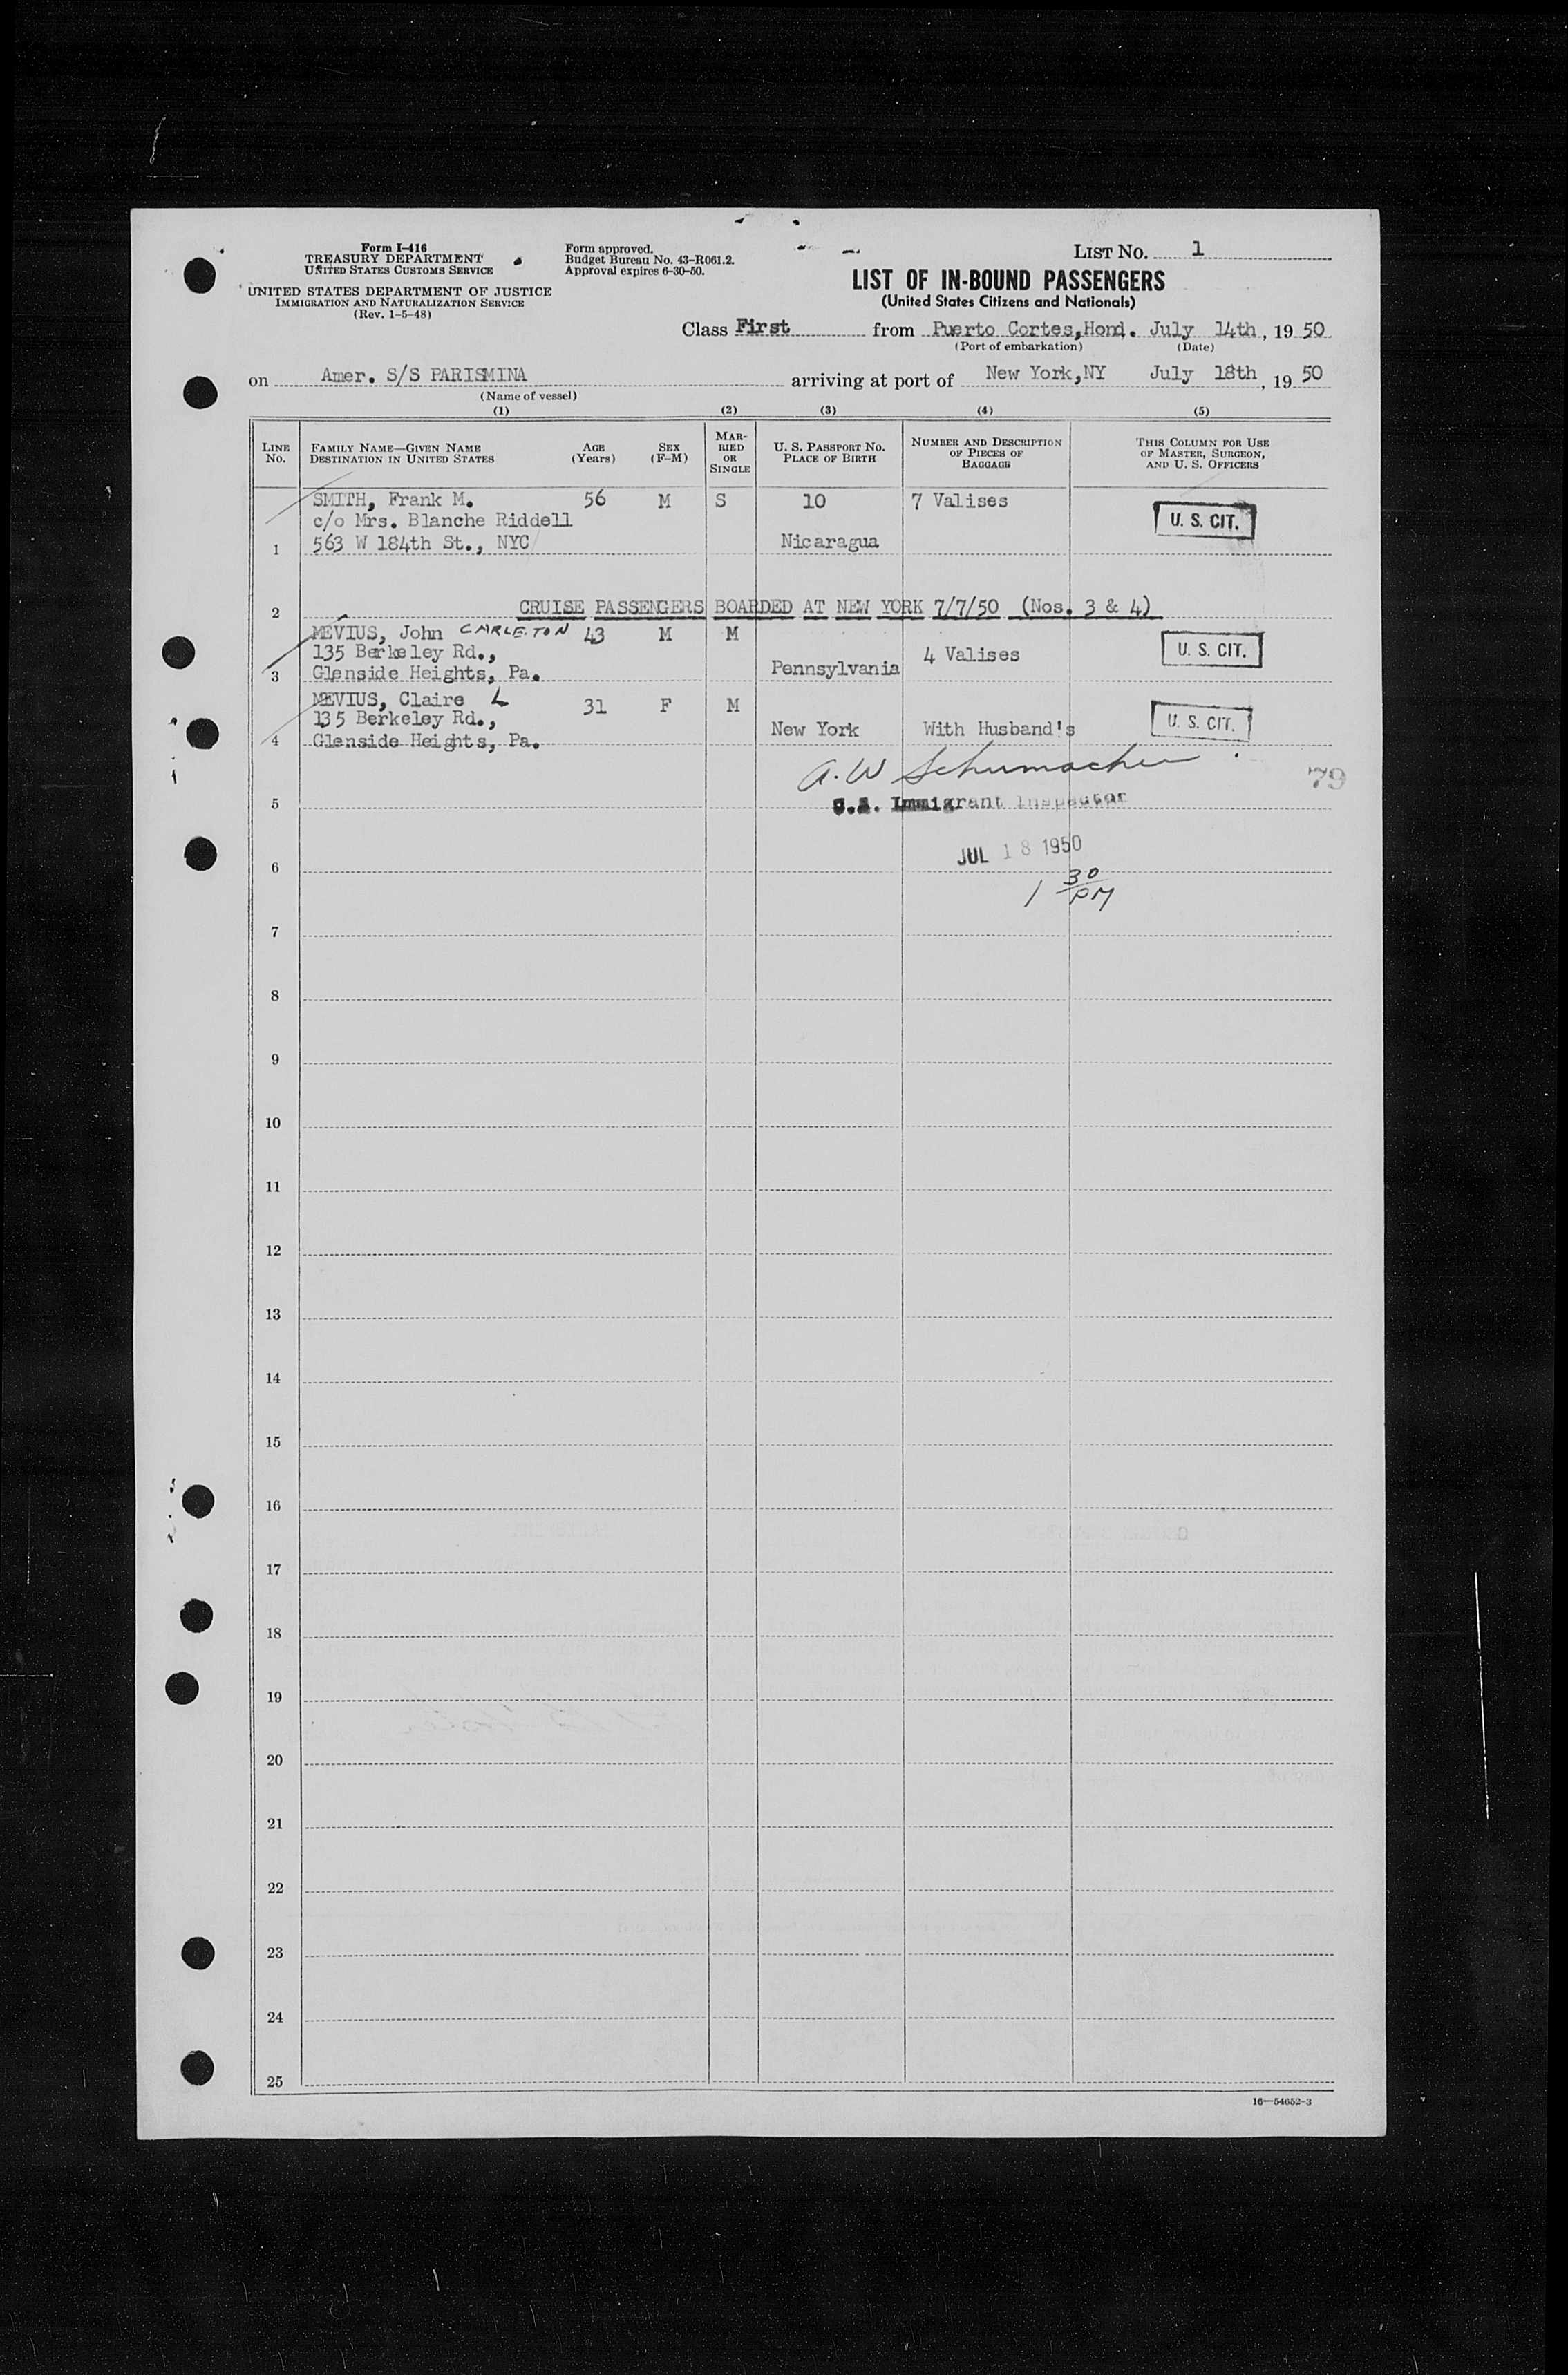 Form I-416
TREASURY DEPARTMENT
UNITED STATES CUSTOMS SERVICE
UNITED STATES DEPARTMENT OF JUSTICE
IMMIGRATION AND NATURALIZATION SERVICE
(Rev. 1-5-48)
Form approved.
Budget Bureau No. 43-R061.2.
Approval expires 6-30-50.
LIST NO. 1
LIST OF IN-BOUND PASSENGERS
(United States Citizens and Nationals)
Class First from Puerto Cortes, Hond. July 14th, 1950
(Port of embarkation) (Date)
on Amer. S/S PARISMINA arriving at port of New York, NY July 18th, 1950
(Name of vessel)
(1) (2) (3) (4) (5)
LINE NO.
FAMILY NAME—GIVEN NAME
DESTINATION IN UNITED STATES
AGE (Years)
SEX (F-M)
MARRIED OR SINGLE
U. S. PASSPORT NO.
PLACE OF BIRTH
NUMBER AND DESCRIPTION OF PIECES OF BAGGAGE
THIS COLUMN FOR USE OF MASTER, SURGEON, AND U. S. OFFICERS
SMITH, Frank M. 56 M S 10 7 Valises
c/o Mrs. Blanche Riddell U. S. CIT.
1 563 W 184th St., NYC Nicaragua
2 CRUISE PASSENGERS BOARDED AT NEW YORK 7/7/50 (Nos. 3 & 4)
MEVIUS, John CARLETON 43 M M
135 Berkeley Rd., 4 Valises U. S. CIT.
3 Glenside Heights, Pa. Pennsylvania
MEVIUS, Claire L 31 F M
135 Berkeley Rd., U. S. CIT.
4 Glenside Heights, Pa. New York With Husband's
A. W Schumacher
79
5 U.S. Immigrant Inspector
JUL 18 1950
6
1 30 PM
7
8
9
10
11
12
13
14
15
16
17
18
19
20
21
22
23
24
25
16—54652-3